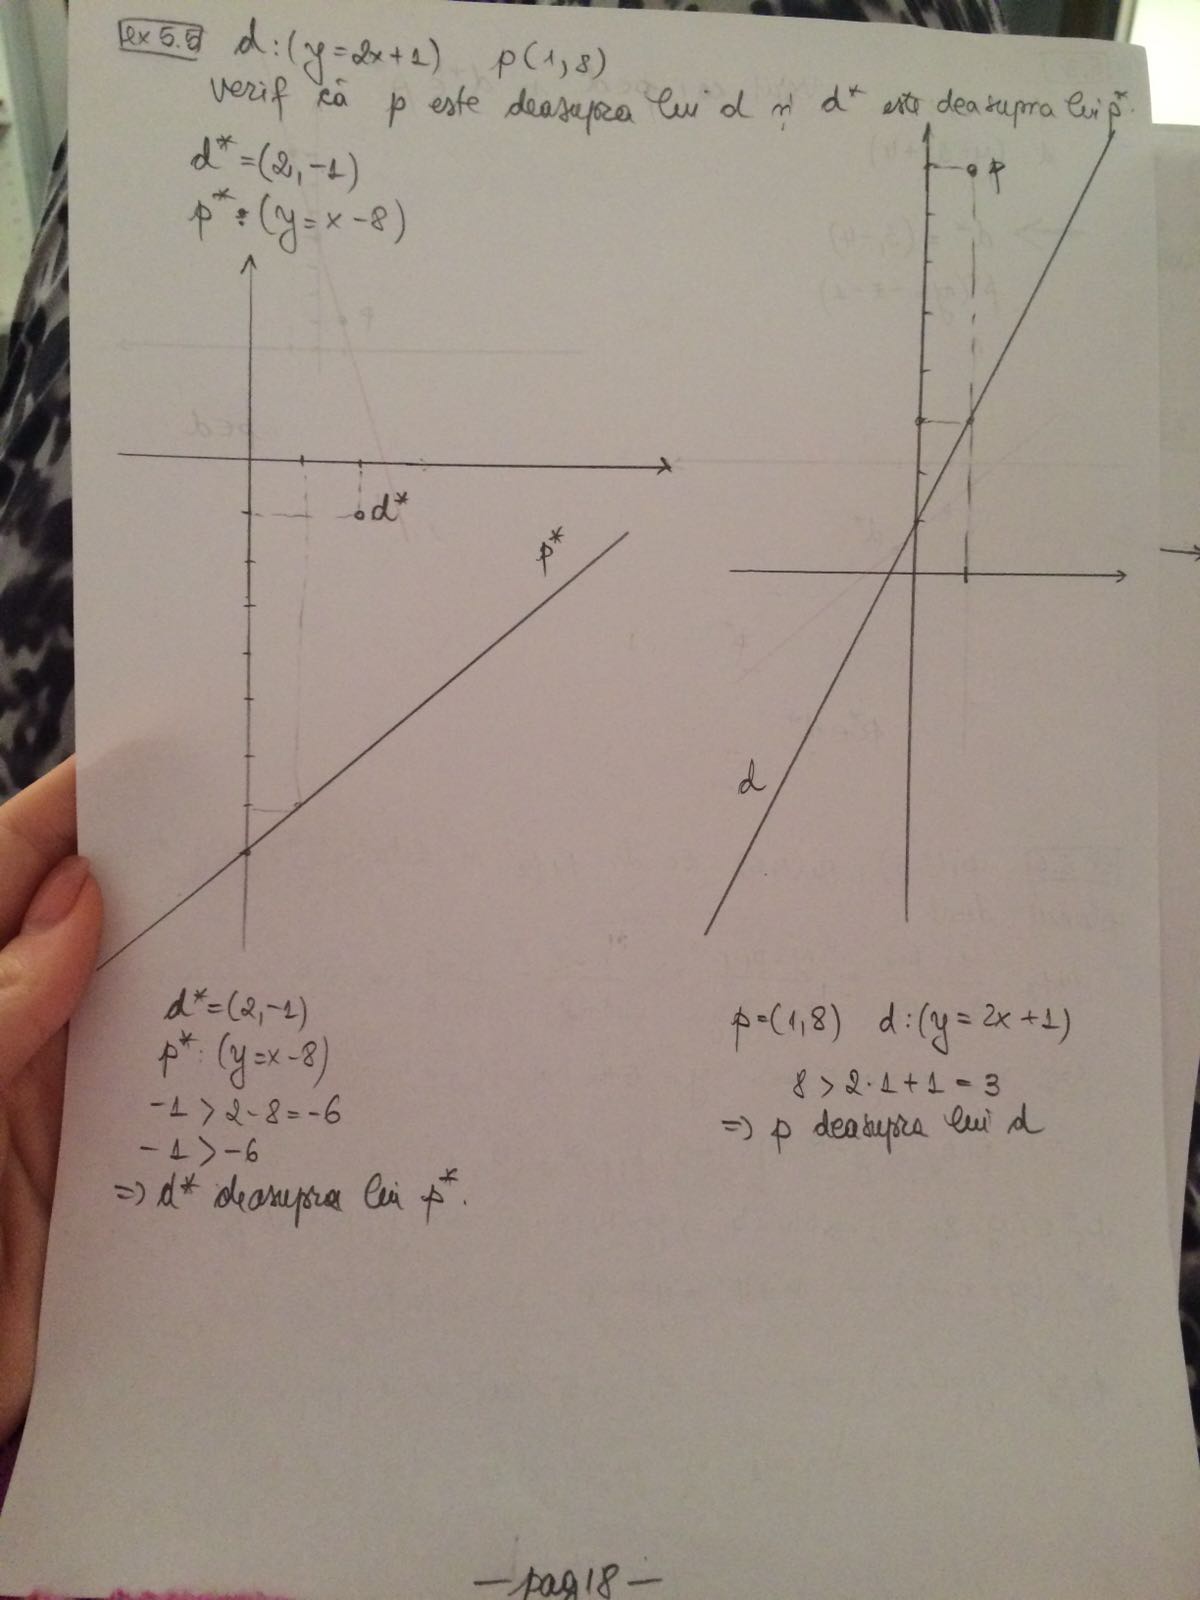 ex 5.5 d:(y=2x+1) p(1,8)
verif că p este deasupra lui d și d* este deasupra lui p*.
d*=(2,-1)
p*:(y=x-8)
p
d*
p*
d
d*=(2,-1)
p*:(y=x-8)
-1>2-8=-6
-1>-6
=> d* deasupra lui p*.
p=(1,8) d:(y=2x+1)
8>2·1+1=3
=> p deasupra lui d
— pag 18 —